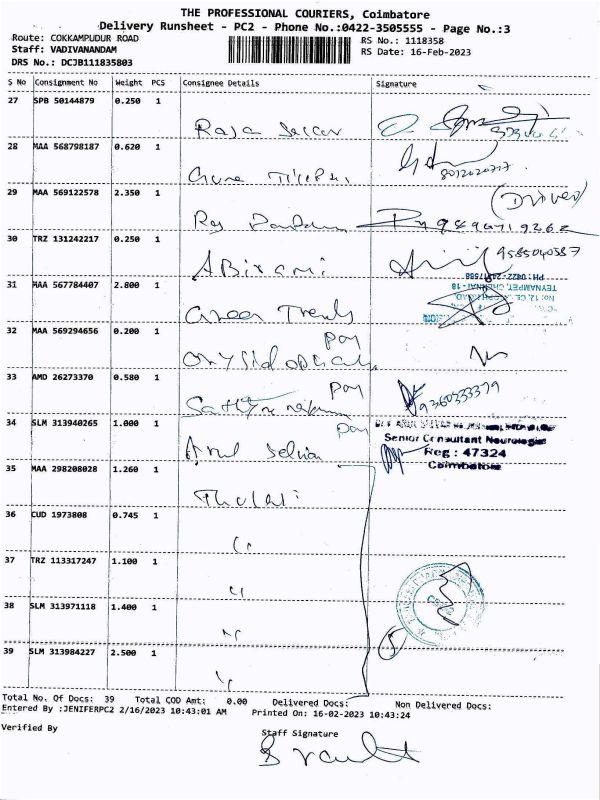 THE PROFESSIONAL COURIERS, Coimbatore
Delivery Runsheet - PC2 - Phone No.:0422-3505555 - Page No.:3
Route: COKKAMPUDUR ROAD
RS No.: 1118358
Staff: VADIVANANDAM
RS Date: 16-Feb-2023
DRS No.: DCJB111835803
S No Consignment No Weight PCS Consignee Details Signature
27 SPB 50144879 0.250 1
Raja Sekar
28 MAA 568798187 0.620 1
8012020717
29 MAA 569122578 2.350 1
(Driver)
30 TRZ 131242217 0.250 1
9585040587
ABirami
31 MAA 567784407 2.800 1
PH: 0422-
TEYNAMPET, CHENNAI - 18
Green Trends
32 MAA 569294656 0.200 1
33 AMD 26273370 0.580 1
9360333379
34 SLM 313940265 1.000 1
Senior Consultant Neurologist
Arul Selvan
Reg : 47324
Coimbatore
35 MAA 298208028 1.260 1
Thulasi
36 CUD 1973808 0.745 1
37 TRZ 113317247 1.100 1
38 SLM 313971118 1.400 1
39 SLM 313984227 2.500 1
5
Total No. Of Docs: 39 Total COD Amt: 0.00 Delivered Docs: Non Delivered Docs:
Entered By :JENIFERPC2 2/16/2023 10:43:01 AM Printed On: 16-02-2023 10:43:24
Verified By
Staff Signature